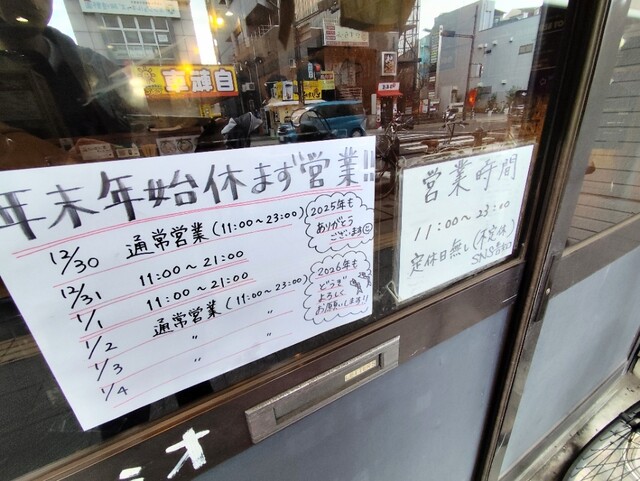 年末年始休まず営業!!
12/30 通常営業(11:00~23:00)
12/31 11:00~21:00
1/1 11:00~21:00
1/2 通常営業(11:00~23:00)
1/3 〃 〃
1/4 〃 〃
2025年も
ありがとう
ございます
2026年も
どうぞ
よろしく
お願いします!!
営業時間
11:00~23:00
定休日無し(不定休)
SNS告知